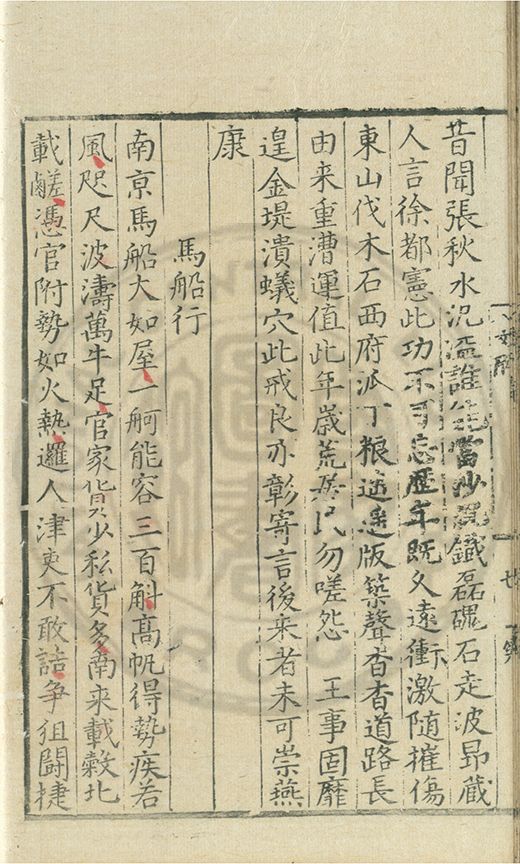 昔聞張秋水汎溢誰當沙磊磈石走波昂藏
人言徐都憲此功不可忘歷年既久遠衝激随摧傷
東山伐木石西府派丁粮迢版築聲杳杳道路長
由来重漕運值此年歲荒居民勿嗟怨 王事固靡
遑金堤潰蟻穴此戒良亦彰寄言後来者未可崇燕
康
馬船行
南京馬船大如屋一舸能容三百斛高帆得勢疾若
風咫尺波濤萬牛足官家貨少私貨多南来載穀北
載鹺憑官附勢如火熱邏人津吏不敢詰爭狙鬪捷